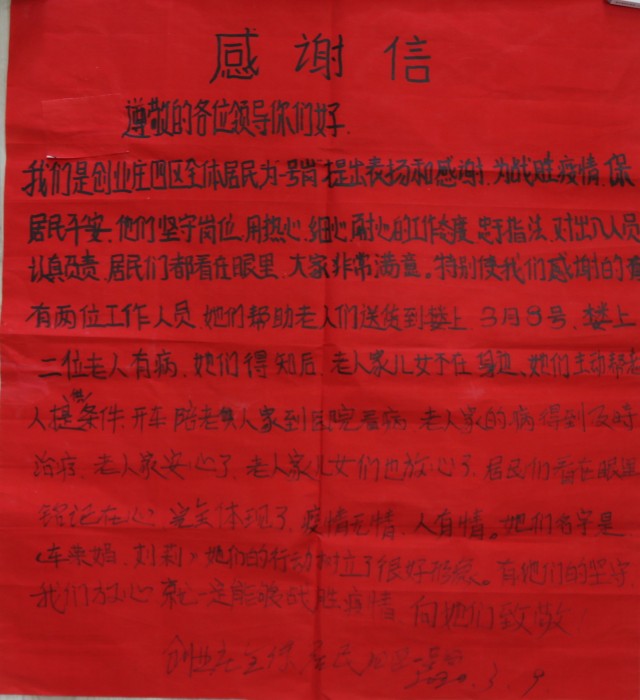 感谢信
尊敬的各位领导你们好.
我们是创业庄四区全体居民为一号岗提出表扬和感谢.为战胜疫情.保
居民平安.他们坚守岗位.用热心.细心.耐心的工作态度.忠于指法.对出入人员
认真负责.居民们都看在眼里.大家非常满意。特别使我们感谢的有
有两位工作人员.她们帮助老人们送货到楼上.3月8号.楼上
二位老人有病.她们得知后.老人家儿女不在身边.她们主动帮老
人提供条件.开车陪老人家到医院看病.老人家的病得到及时
治疗.老人家安心了.老人家儿女们也放心了.居民们看在眼里
铭记在心.完全体现了.疫情无情.人有情。她们名字是
刘莉>她们的行动树立了很好形象。有他们的坚守
我们放心 一定能够战胜疫情.向她们致敬
创业庄 居民 一号岗
2020.3.9